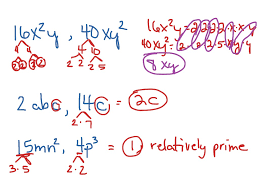 16x²y, 40xy²
4 4 4 10
2 2 2 2 2 2 2 5
16x²y = 2·2·2·2·x·x·y
40xy² = 2·2·2·5·x·y·y
8xy
2abc, 14c = 2c
2·7
15mn², 4p³ = 1 relatively prime
3·5 2·2